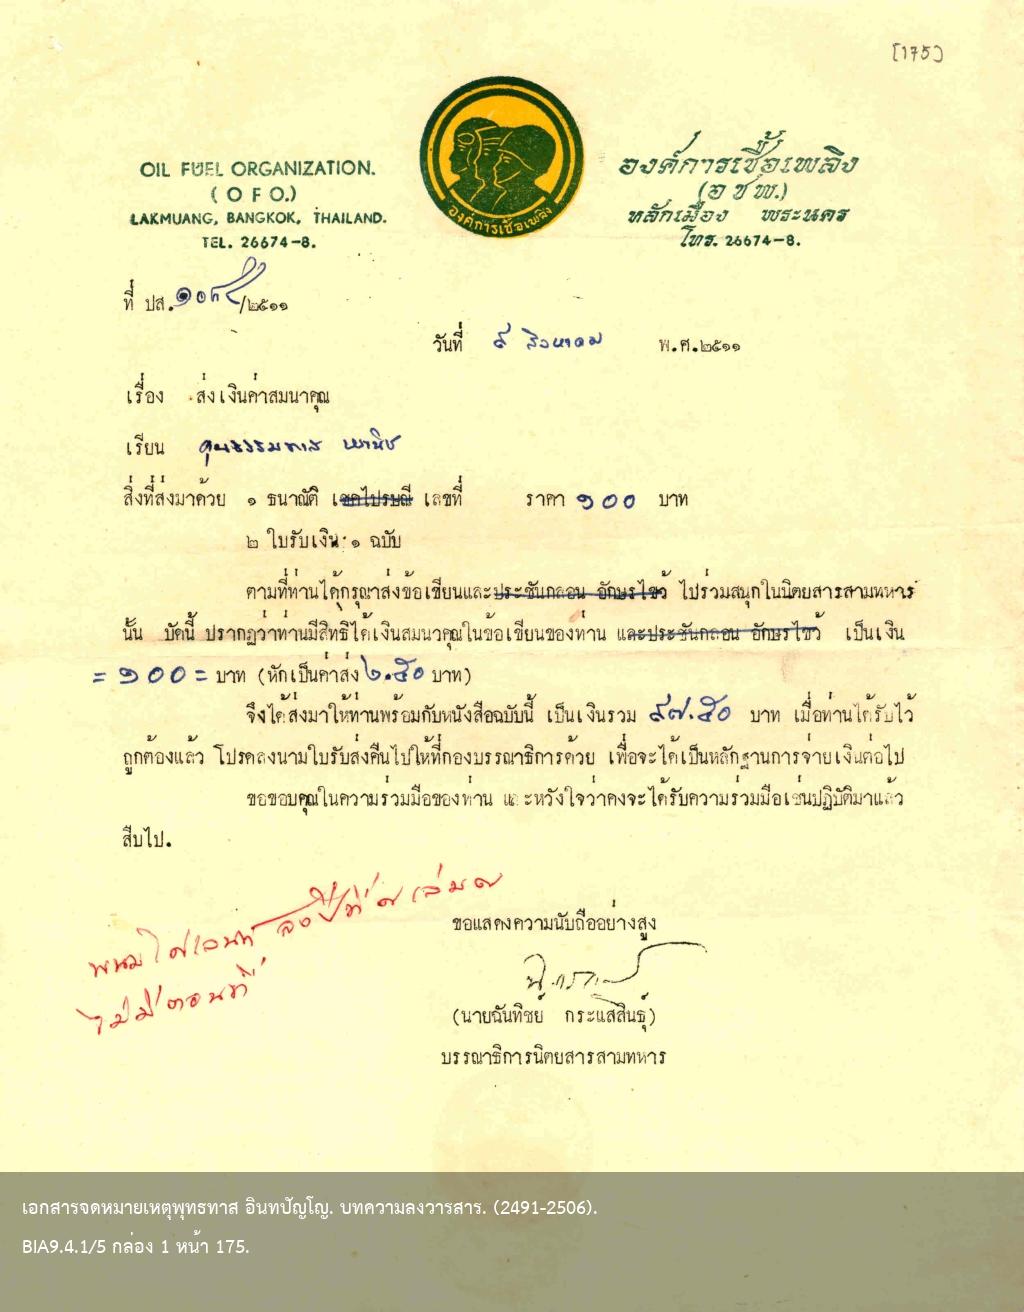 [175]
OIL FUEL ORGANIZATION.
( O F O.)
LAKMUANG, BANGKOK, THAILAND.
TEL. 26674-8.
องค์การเชื้อเพลิง
องค์การเชื้อเพลิง
(อ ช พ.)
หลักเมือง พระนคร
โทร. 26674-8.
ที่ ปส. /๒๕๑๑
วันที่ ๙ สิงหาคม พ.ศ.๒๕๑๑
เรื่อง ส่งเงินค่าสมนาคุณ
เรียน คุณธรรมทาส พานิช
สิ่งที่ส่งมาด้วย ๑ ธนาณัติ เช็คไปรษณี เลขที่ ราคา ๑๐๐ บาท
๒ ใบรับเงิน ๑ ฉบับ
ตามที่ท่านได้กรุณาส่งข้อเขียนและประชันกลอน อักษรไขว้ ไปร่วมสนุกในนิตยสารสามทหาร
นั้น บัดนี้ ปรากฏว่าท่านมีสิทธิได้เงินสมนาคุณในข้อเขียนของท่าน และประชันกลอน อักษรไขว้ เป็นเงิน
= ๑๐๐ = บาท (หักเป็นค่าส่ง ๒.๕๐ บาท)
จึงได้ส่งมาให้ท่านพร้อมกับหนังสือฉบับนี้ เป็นเงินรวม ๙๗.๕๐ บาท เมื่อท่านได้รับไว้
ถูกต้องแล้ว โปรดลงนามใบรับส่งคืนไปให้ที่กองบรรณาธิการด้วย เพื่อจะได้เป็นหลักฐานการจ่ายเงินต่อไป
ขอขอบคุณในความร่วมมือของท่าน และหวังใจว่าคงจะได้รับความร่วมมือเช่นปฏิบัติมาแล้ว
สืบไป.
ขอแสดงความนับถืออย่างสูง
(นายฉันทิชย์ กระแสสินธุ์)
บรรณาธิการนิตยสารสามทหาร
ลงปีที่ เล่ม
ไม่มีตอนที่
เอกสารจดหมายเหตุพุทธทาส อินทปัญโญ. บทความลงวารสาร. (2491-2506).
BIA9.4.1/5 กล่อง 1 หน้า 175.